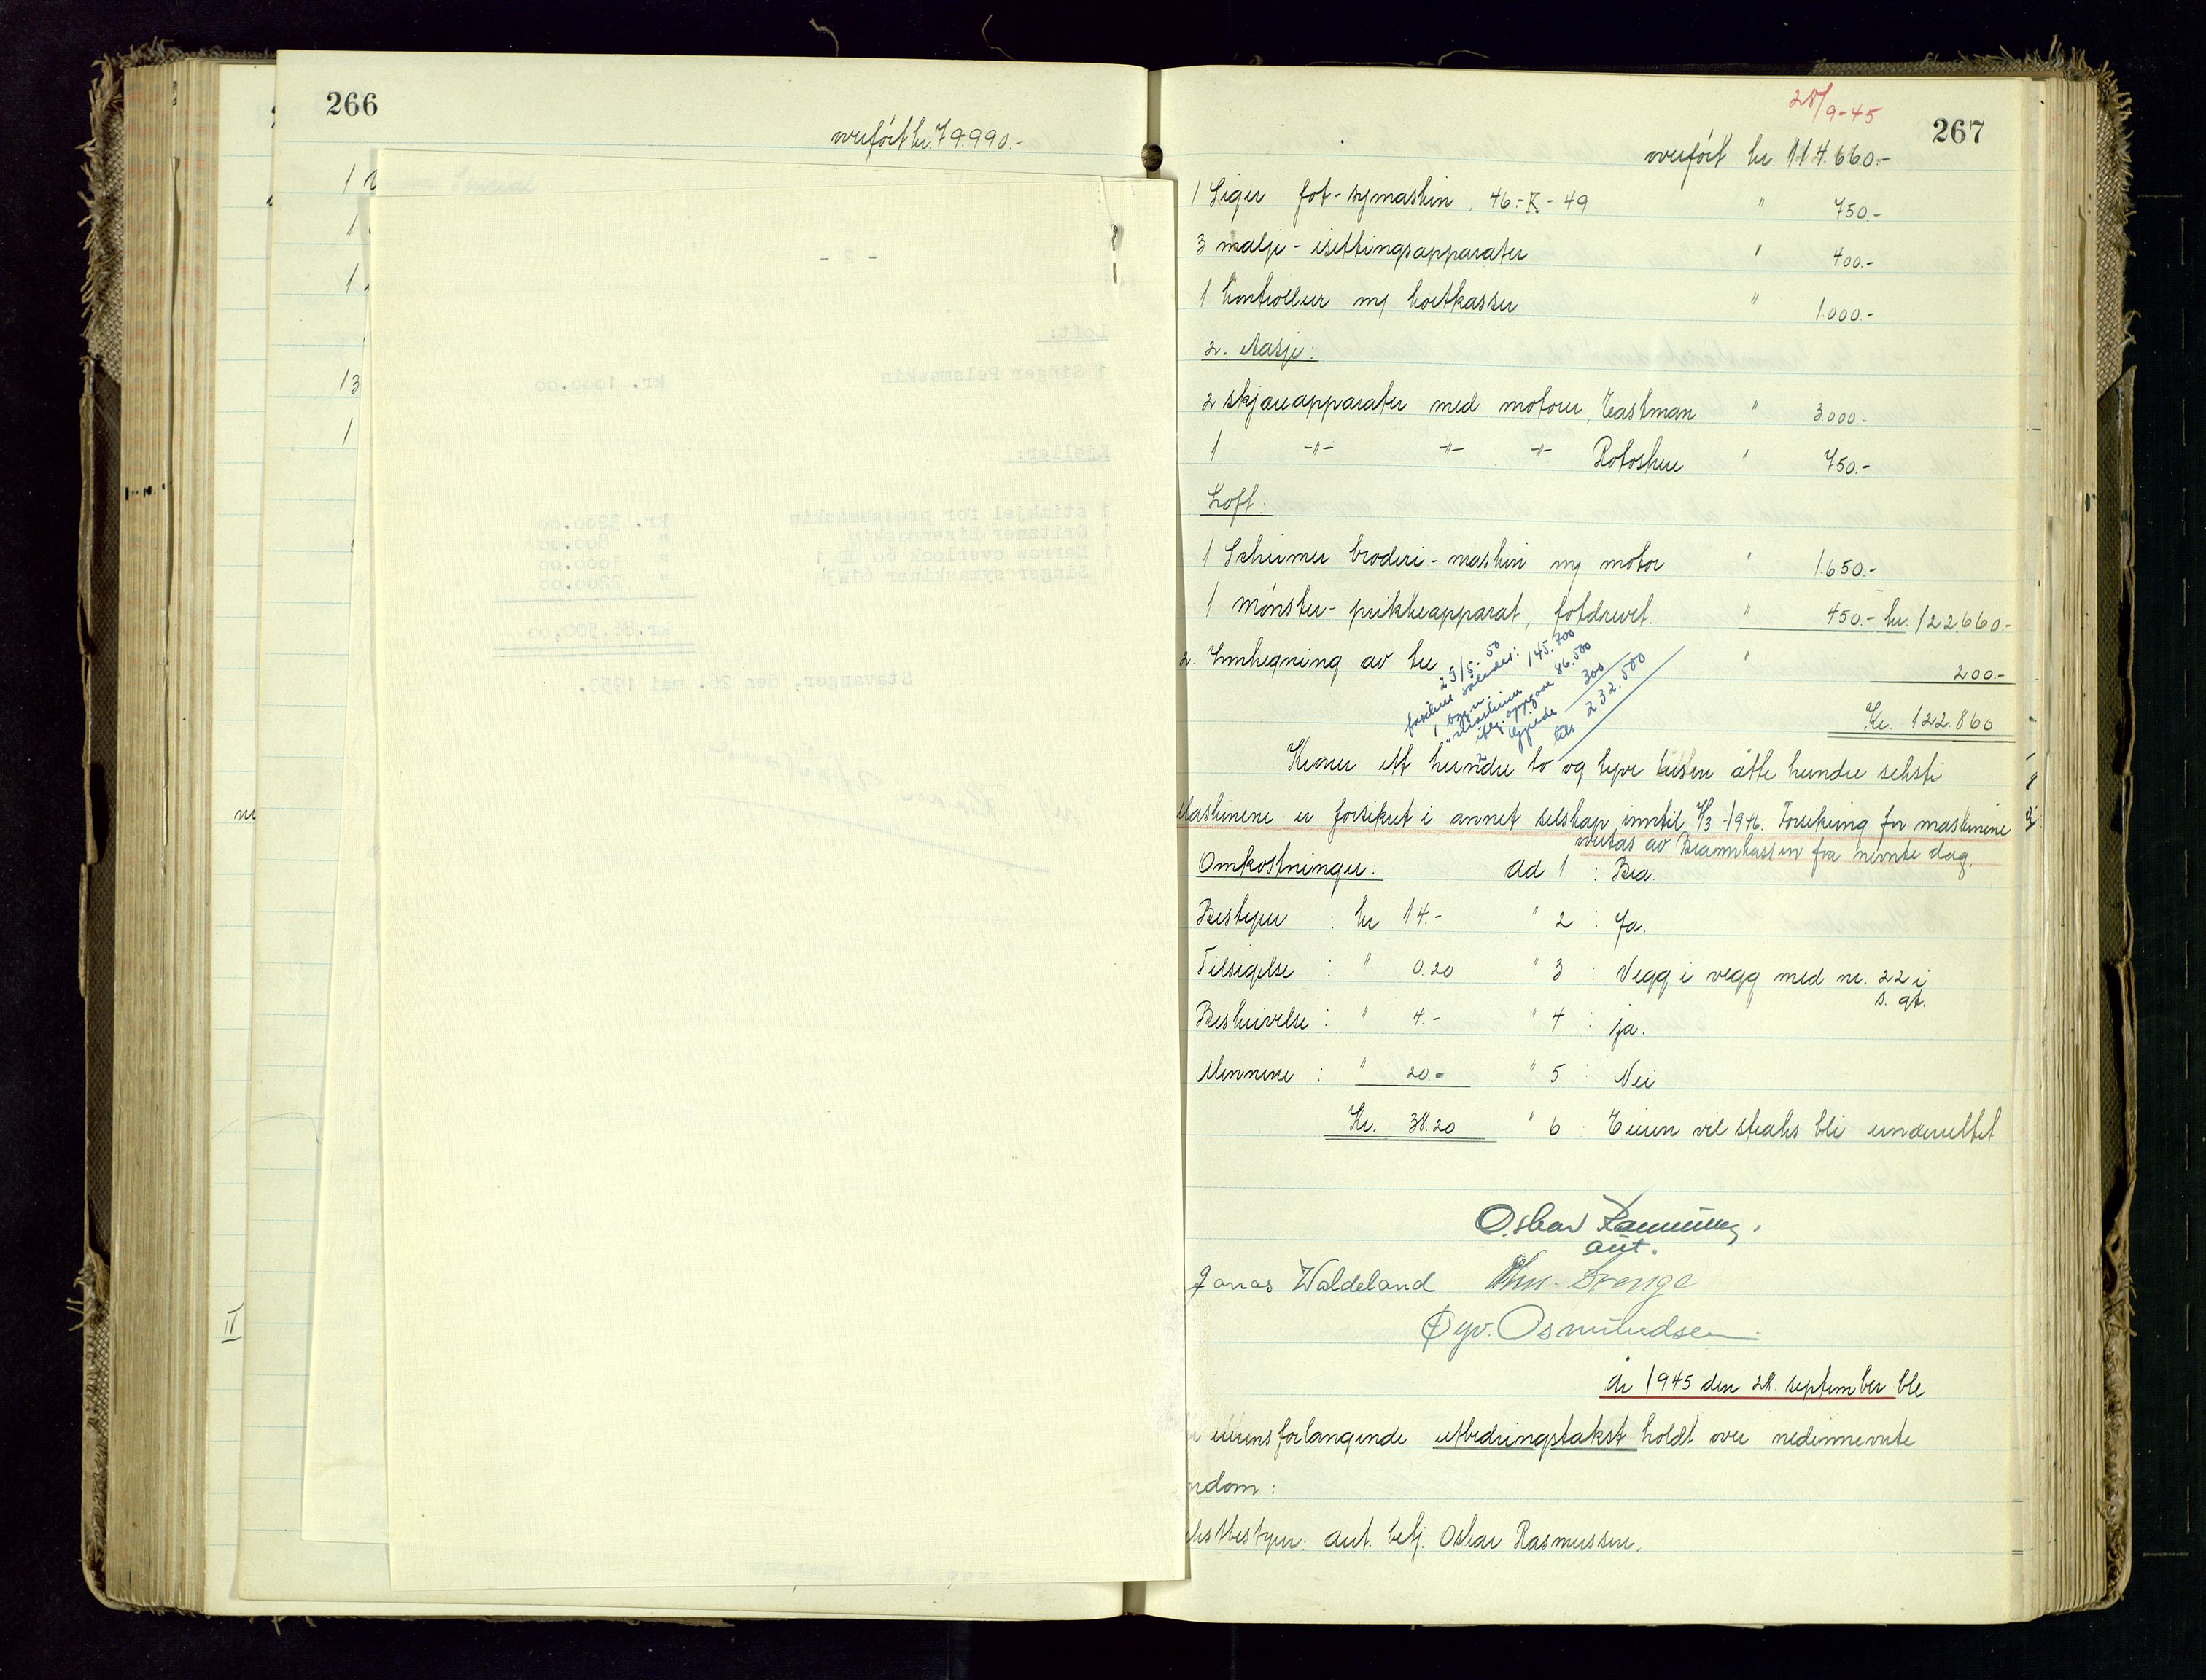 266
overført kr. 79.990.-
1
1
1
13
1
II
- 2 -
Loft:
1 Singer Pelsmaskin kr. 1000.00
Kjeller:
1 stimkjel for pressemaskin kr. 3200.00
1 Gritzner Lisenmaskin " 800.00
1 Merrow overlock 60 UD 1 " 1000.00
4 Singer symaskiner 61W3 " 2200.00
kr. 86.500,00
Stavanger, den 26. mai 1950.
28/9-45
267
overført kr. 114.660.-
1 Siger fot-symaskin, 46-K-49 " 750.-
3 malje-isettingsapparater " 400.-
1 Kontrollur m/ kortkasser " 1.000.-
2. etasje:
2 skjæreapparater med motorer, Eastman " 3.000.-
1 -"- -"- -"- Rotoshere " 750.-
Loft:
1 Schirmer broderi-maskin m/ motor " 1.650.-
1 mønster-prikkeapparat, fotdrevet. " 450.- kr. 122.660.-
2. Innhegning av tre " 200.-
25/5-50
forsikret således:
1, bygn 145.700
" maskiner
iflg. oppgave 86.500
Gjerde 300
tils 232.500
Kr. 122.860
Kroner ett hundre to og tyve tusen åtte hundre seksti
Maskinene er forsikret i annet selskap inntil 1/3-1946. Forsikring for maskinene
overtas av Brannkassen fra nevnte dag.
Omkostninger: ad 1 : Bra.
Bestyrer : kr 14.- " 2 : Ja.
Tilsigelse : " 0.20 " 3 : Vegg i vegg med nr. 22 i
s. gt.
Beskrivelse : " 4.- " 4 : ja.
Mennene : " 20.- " 5 : Nei
Kr. 38.20 " 6 : Eieren vil straks bli underrettet
Oskar Rasmussen,
aut.
Jonas Waldeland
Øyv. Osmundsen
År 1945 den 28. september ble
eierens forlangende utbedringstakst holdt over nedennevnte
ndom:
kstbestyrer: aut. betj. Oskar Rasmussen.